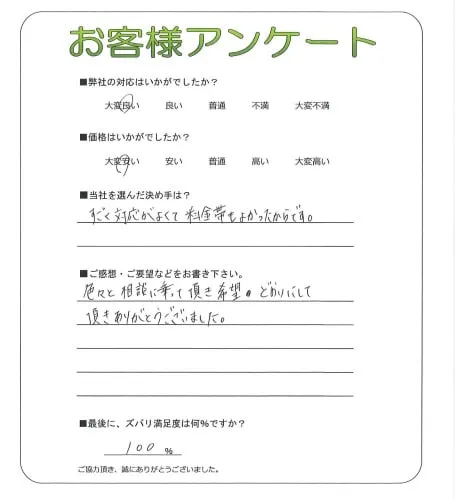 お客様アンケート
■弊社の対応はいかがでしたか？
大変良い 良い 普通 不満 大変不満
■価格はいかがでしたか？
大変安い 安い 普通 高い 大変高い
■当社を選んだ決め手は？
すごく対応がよくて料金帯もよかったからです。
■ご感想・ご要望などをお書き下さい。
色々と相談に乗って頂き希望のどおりにして
頂きありがとうございました。
■最後に、ズバリ満足度は何％ですか？
100 ％
ご協力頂き、誠にありがとうございました。